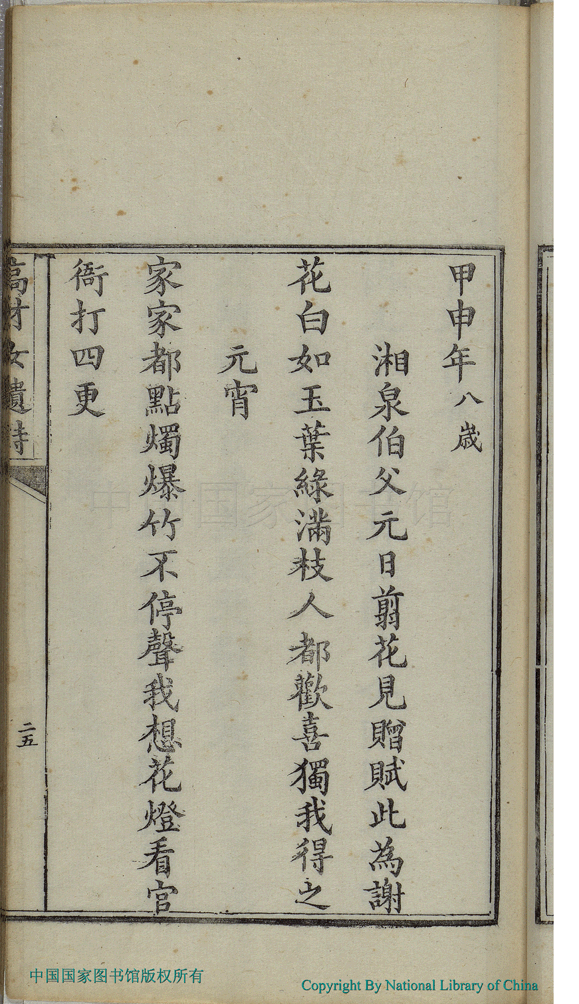 甲申年八歲
湘泉伯父元日翦花見贈賦此為謝
花白如玉葉綠滿枝人都歡喜獨我得之
元宵
家家都點燭爆竹不停聲我想花燈看官
衙打四更
高才女遺詩
二五
中国国家图书馆
中国国家图书馆版权所有
Copyright By National Library of China